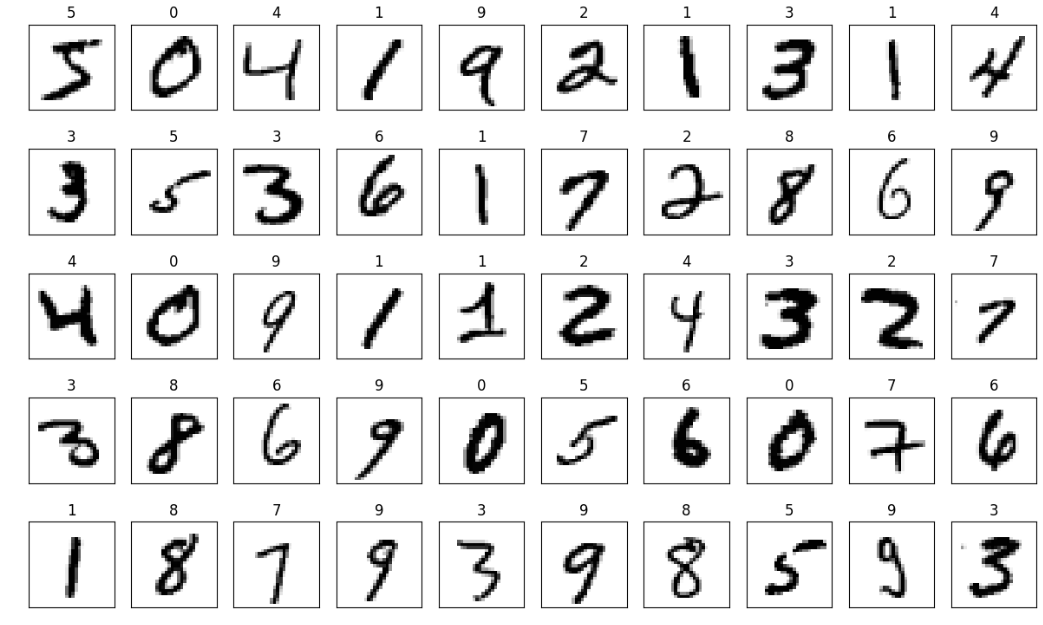 5 0 4 1 9 2 1 3 1 4
5 0 4 1 9 2 1 3 1 4
3 5 3 6 1 7 2 8 6 9
3 5 3 6 1 7 2 8 6 9
4 0 9 1 1 2 4 3 2 7
4 0 9 1 1 2 4 3 2 7
3 8 6 9 0 5 6 0 7 6
3 8 6 9 0 5 6 0 7 6
1 8 7 9 3 9 8 5 9 3
1 8 7 9 3 9 8 5 9 3